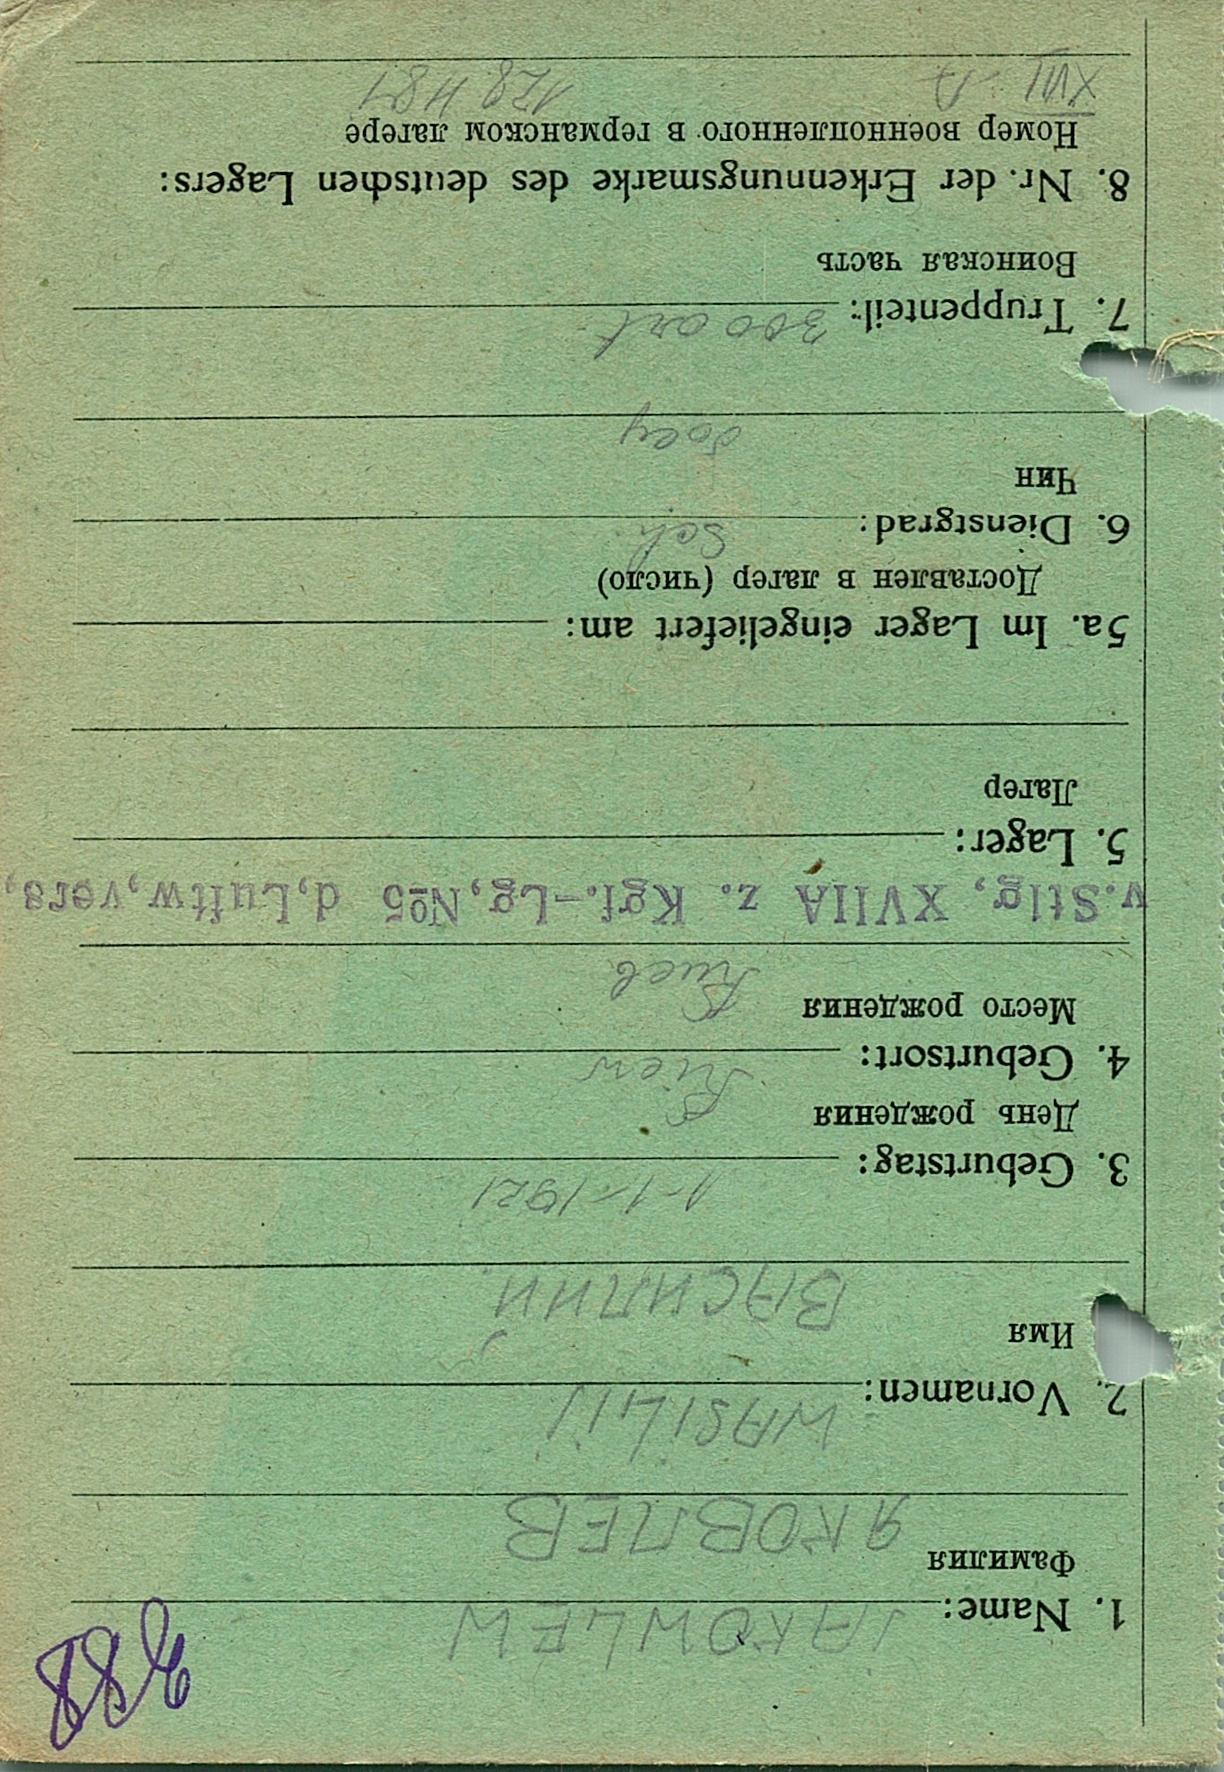 1. Name: JAKOWLEW
Фамилия ЯКОВЛЕВ
2. Vornamen: WASILIJ
Имя ВАСИЛИЙ
3. Geburtstag: 1-1-1921
День рождения
4. Geburtsort: Kiew
Место рождения Киев
v.Stlg, XVIIA z. Kgf.-Lg,№5 d,Luftw,vers,
5. Lager:
Лагер
5a. Im Lager eingeliefert am:
Доставлен в лагер (число)
6. Dienstgrad: Sch.
Чин
7. Truppenteil: 300 art
Воинская часть
8. Nr. der Erkennungsmarke des deutschen Lagers:
Номер военнопленного в германском лагере
XVII A